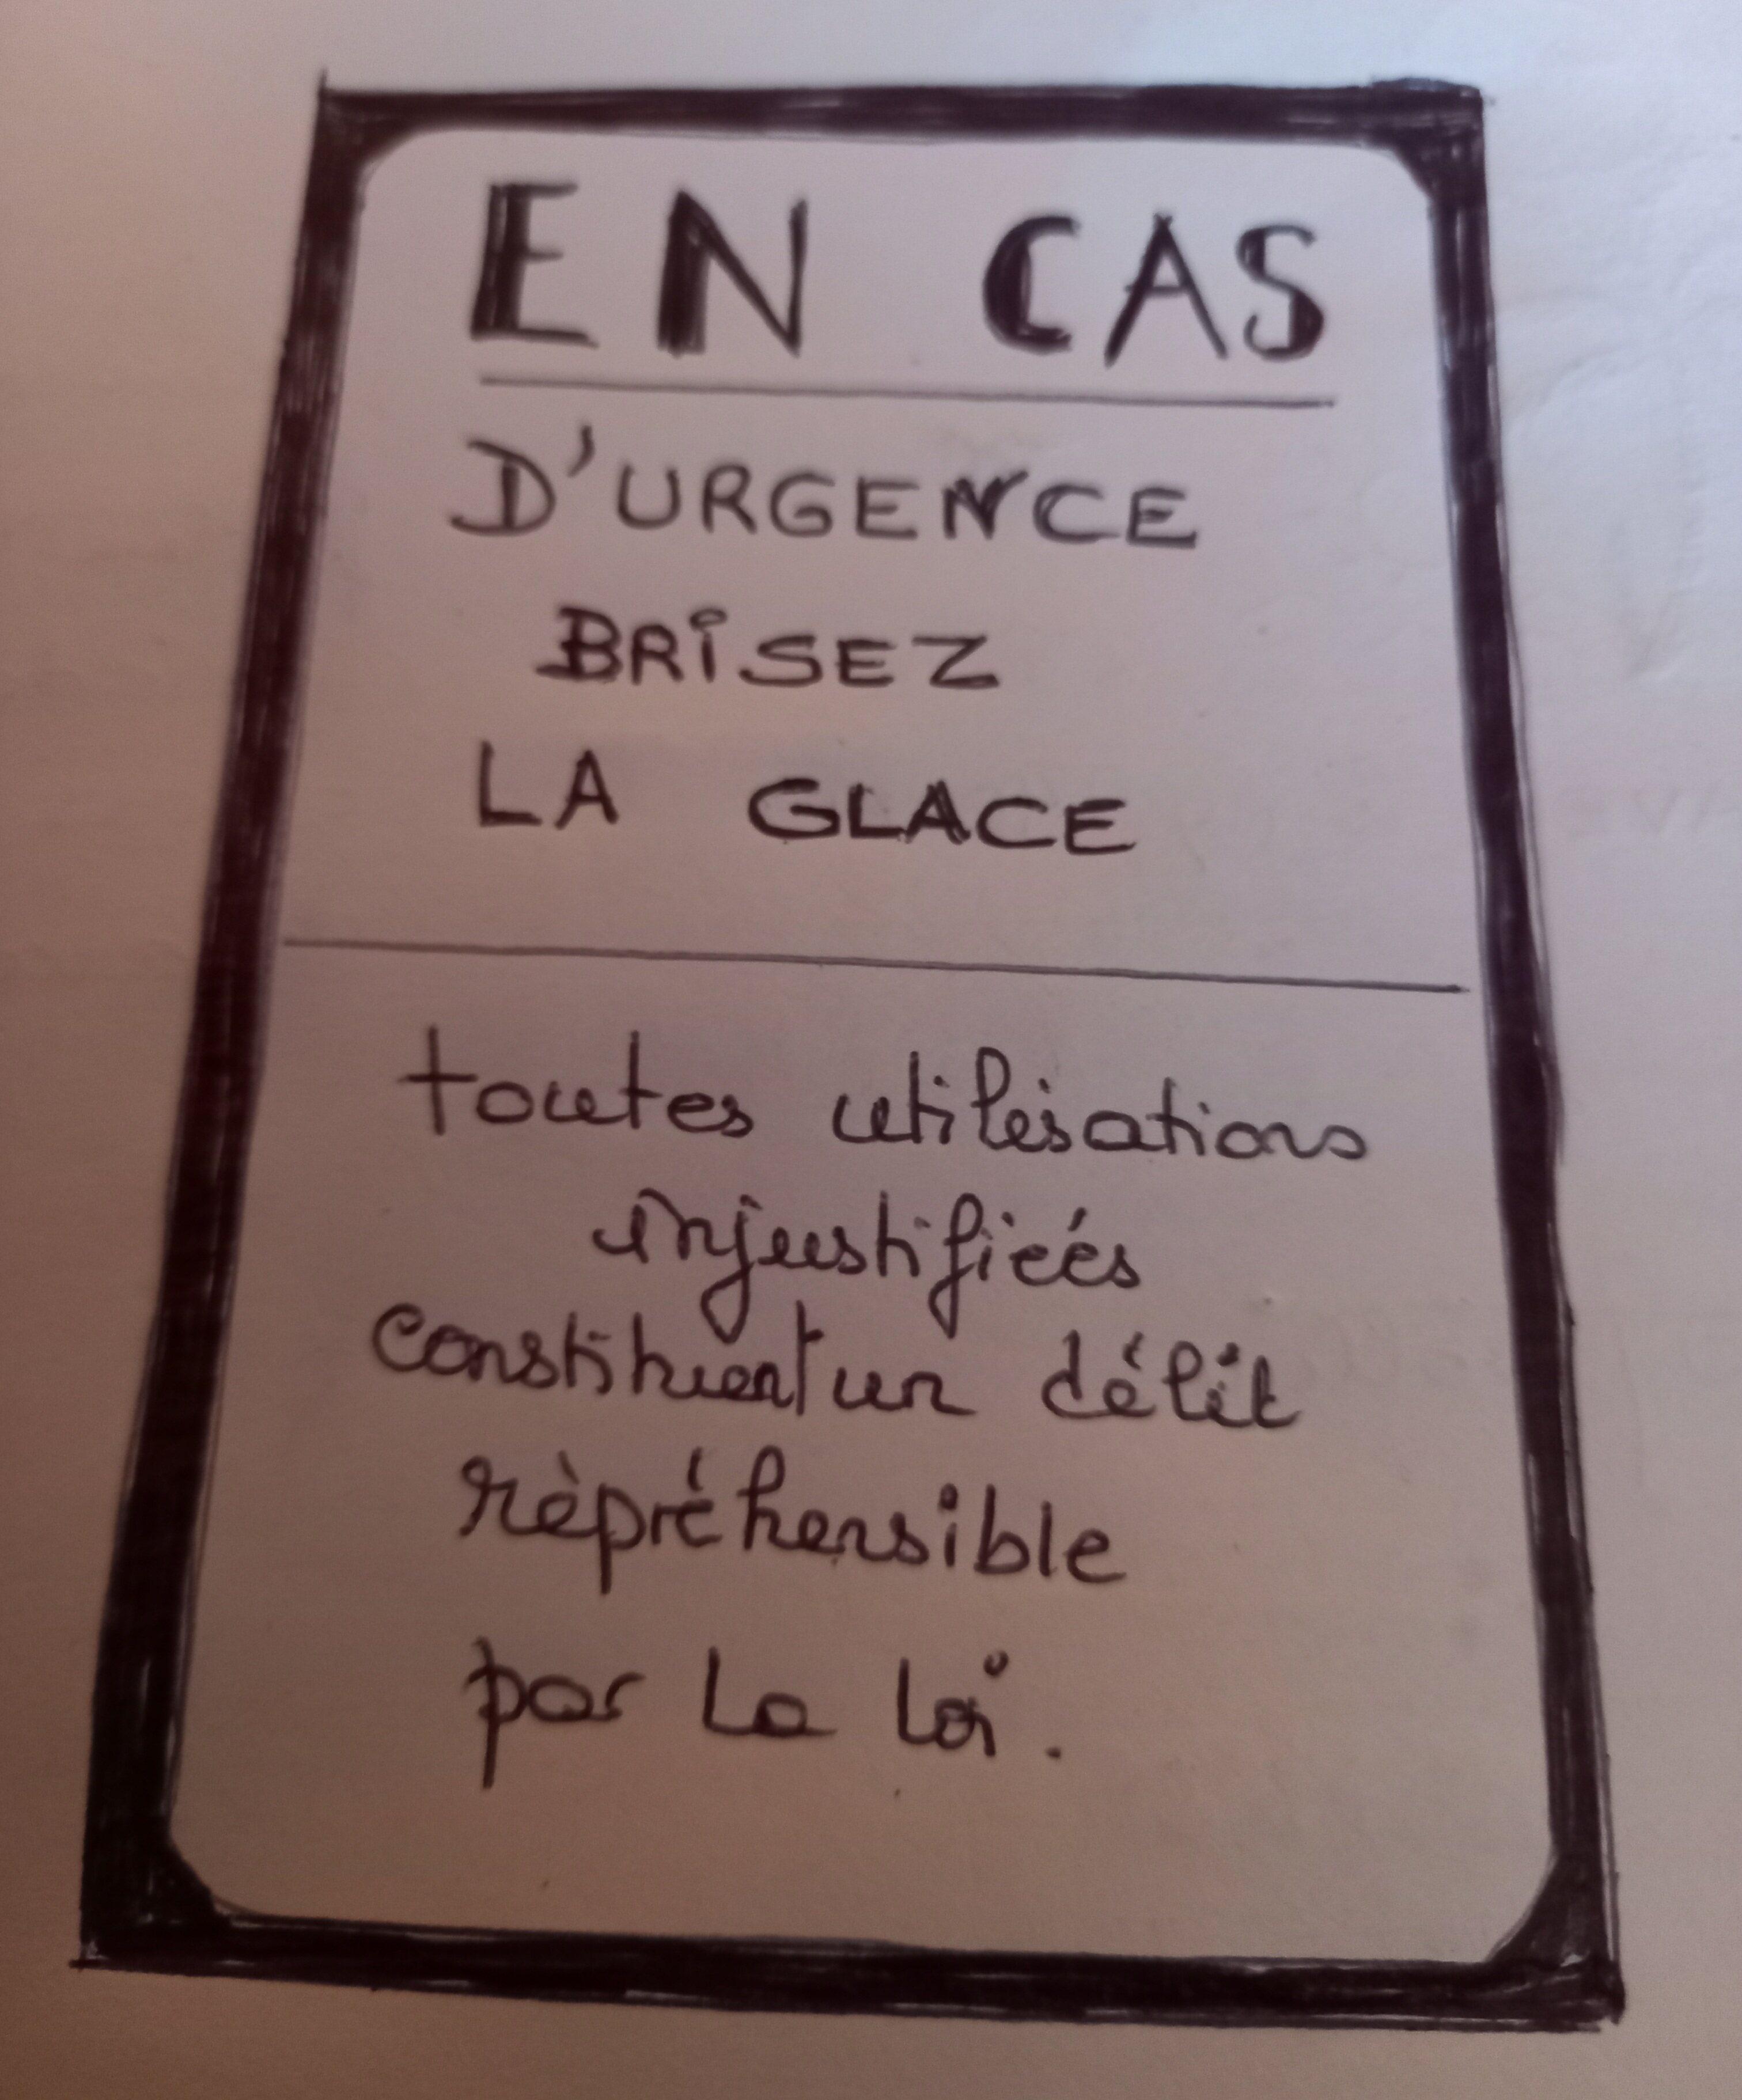 EN CAS
D'URGENCE
BRiSEZ
LA GLACE
toutes utilisations
injustifiées
constituent un délit
rèpréhensible
par La Loi.